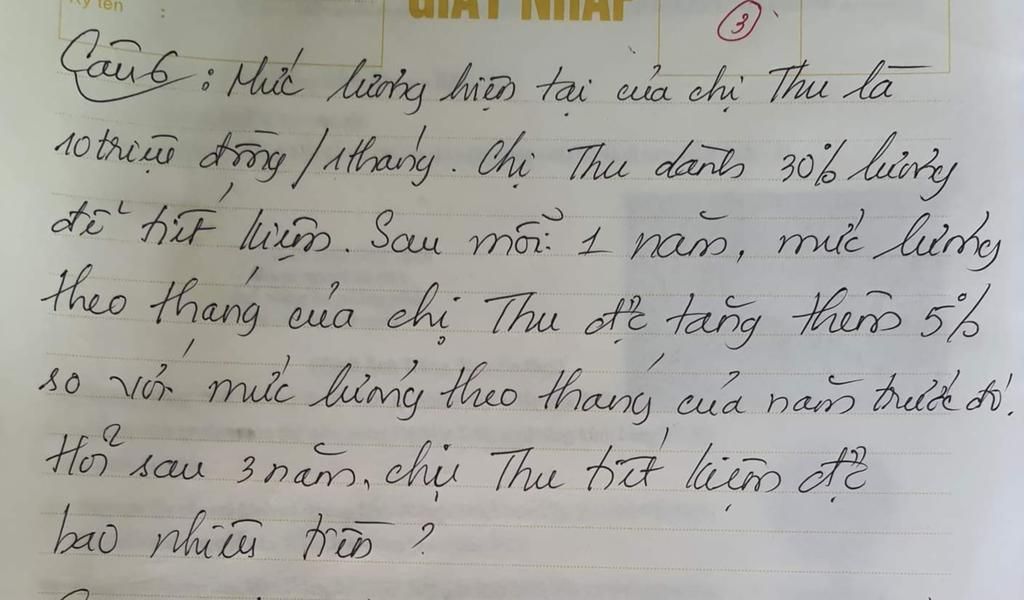 Ký tên :
GIẤY NHÁP
3
Câu 6 : Mức lương hiện tại của chị Thu là
10 triệu đồng / 1 tháng. Chị Thu dành 30% lương
để tiết kiệm. Sau mỗi 1 năm, mức lương
theo tháng của chị Thu đc tăng thêm 5%
so với mức lương theo tháng của năm trước đó.
Hỏi sau 3 năm, chị Thu tiết kiệm đc
bao nhiêu tiền ?